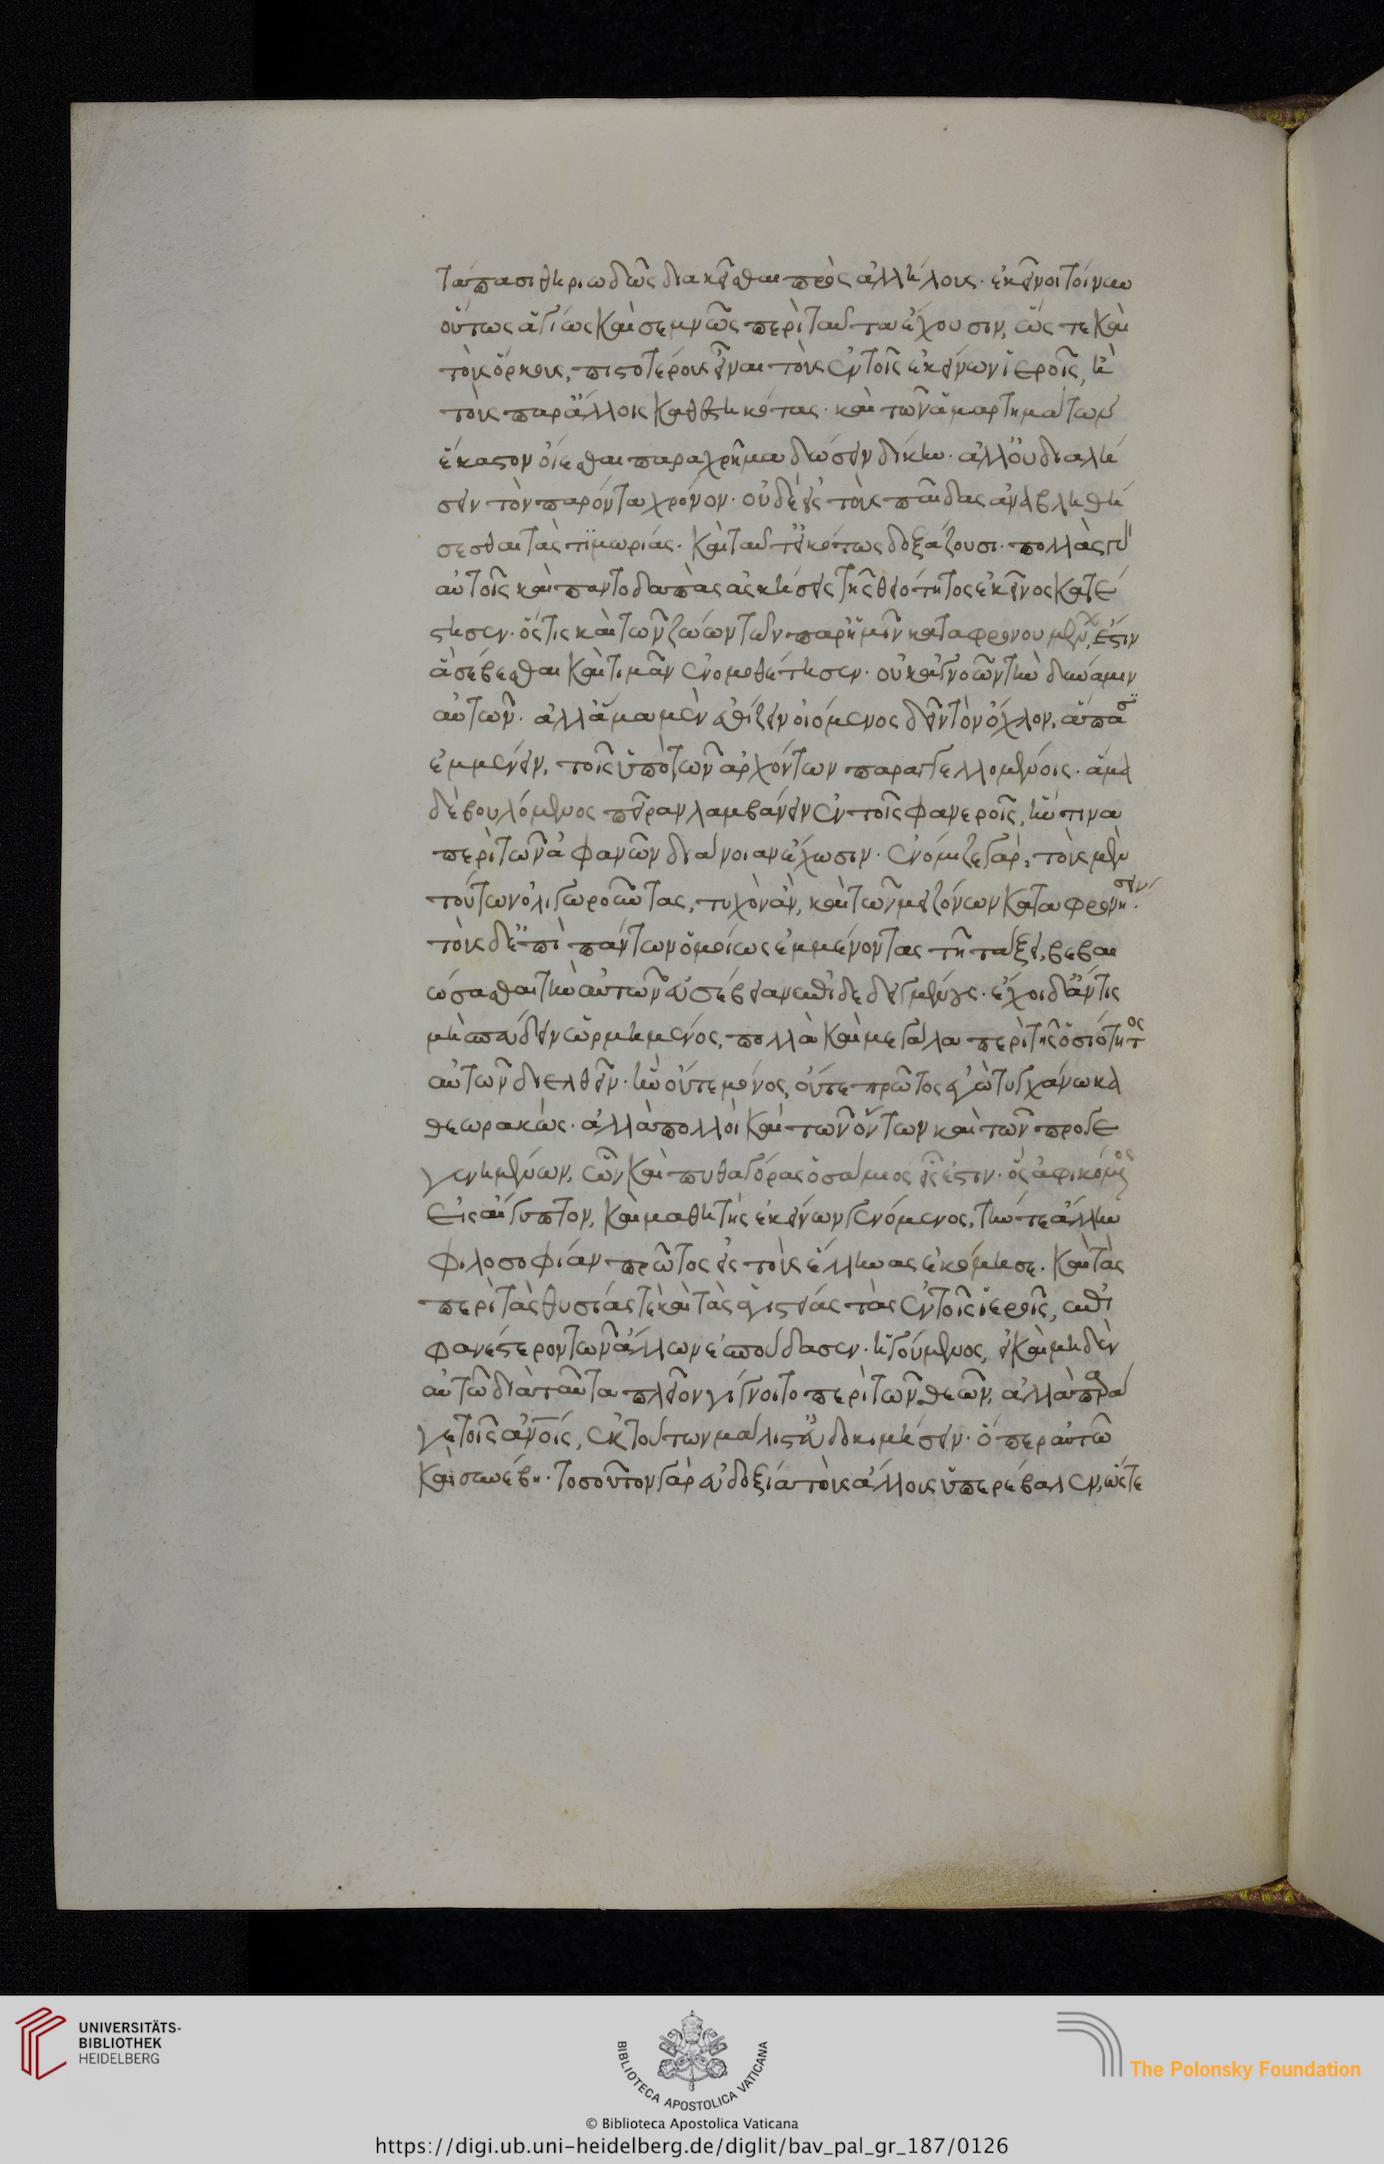 τάπασι θηριωδῶς διακεῖσθαι πρὸς ἀλλήλους· ἐκεῖνοι τοίνυν
οὕτως ἁγίως καὶ σεμνῶς περὶ ταῦτα ἔχουσιν, ὥς τε καὶ
τοὺς ὅρκους, πιστοτέρους εἶναι τοὺς ἐν τοῖς ἐκείνων ἱεροῖς, ἢ
τοὺς παρ' ἄλλοις καθεστηκότας· καὶ τῶν ἁμαρτημάτων
ἕκαστον οἴεσθαι παραχρῆμα δώσειν δίκην· ἀλλ' οὐ διαλή
σειν τὸν παρόντα χρόνον· οὐδ' εἰς τοὺς παῖδας ἀναβληθή
σεσθαι τὰς τιμωρίας· καὶ ταῦτ' εἰκότως δοξάζουσι· πολλὰς γὰρ
αὐτοῖς καὶ παντοδαπὰς ἀσκήσεις τῆς θειότητος ἐκεῖνος κατέ
στησεν· ὅς τις καὶ τῶν ζώων τῶν παρ' ἡμῖν καταφρονουμένων, ἔστιν
ἃ σέβεσθαι καὶ τιμᾶν ἐνομοθέτησεν· οὐκ ἀγνοῶν τὴν δύναμιν
αὐτῶν· ἀλλ' ἅμα μὲν ἐθίζειν οἰόμενος δεῖν τὸν ὄχλον, ἅπασιν
ἐμμένειν, τοῖς ὑπὸ τῶν ἀρχόντων παραγγελλομένοις· ἅμα
δὲ βουλόμενος πεῖραν λαμβάνειν ἐν τοῖς φανεροῖς, ἥν τινα
περὶ τῶν ἀφανῶν διάνοιαν ἔχωσιν· ἐνόμιζε γὰρ, τοὺς μὲν
τούτων ὀλιγωροῦντας, τυχὸν ἂν, καὶ τῶν μειζόνων καταφρονήσειν·
τοὺς δ' ἐπὶ πάντων ὁμοίως ἐμμένοντας τῇ τάξει, βεβαι
ώσασθαι τὴν αὐτῶν εὐσέβειαν ἐπιδεδειγμένους· ἔχοι δ' ἄν τις
μὴ σπεύδειν ὡρμημένος, πολλὰ καὶ μεγάλα περὶ τῆς ὁσιότητος
αὐτῶν διελθεῖν· ἣν οὔτε μόνος, οὔτε πρῶτος ἐγὼ τυγχάνω κα
θεωρακώς· ἀλλὰ πολλοὶ καὶ τῶν ὄντων καὶ τῶν προγε
γενημένων, ὧν καὶ πυθαγόρας ὁ σάμιος εἷς ἐστιν· ὃς ἀφικόμενος
εἰς αἴγυπτον, καὶ μαθητὴς ἐκείνων γενόμενος, τήν τε ἄλλην
φιλοσοφίαν πρῶτος εἰς τοὺς ἕλληνας ἐκόμησε· καὶ τὰς
περὶ τὰς θυσίας τε καὶ τὰς ἁγιστείας τὰς ἐν τοῖς ἱεροῖς, ἐπι
φανέστερον τῶν ἄλλων ἐσπούδασεν· ἡγούμενος, εἰ καὶ μηδὲν
αὐτῷ διὰ ταῦτα πλεῖον γίγνοιτο περὶ τῶν θεῶν, ἀλλὰ παρά
γε τοῖς ἀνοις, ἐκ τούτων μάλιστ' εὐδοκιμήσειν· ὅπερ αὐτῷ
καὶ συνέβη· τοσοῦτον γὰρ εὐδοξίᾳ τοὺς ἄλλους ὑπερέβαλεν, ὥστε
UNIVERSITÄTS-
BIBLIOTHEK
HEIDELBERG
BIBLIOTECA APOSTOLICA VATICANA
The Polonsky Foundation
© Biblioteca Apostolica Vaticana
https://digi.ub.uni-heidelberg.de/diglit/bav_pal_gr_187/0126